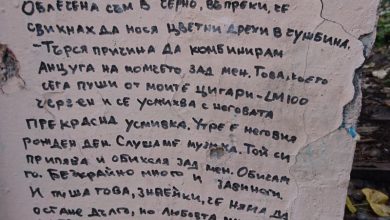 ОБЛЕЧЕНА СЪМ В ЧЕРНО, ВЪПРЕКИ, ЧЕ
СВИКНАХ ДА НОСЯ ЦВЕТНИ ДРЕХИ В ЧУЖБИНА.
-ТЪРСЯ ПРИЧИНА ДА КОМБИНИРАМ
АНЦУГА НА МОМЧЕТО ЗАД МЕН. ТОВА, КОЕТО
СЕГА ПУШИ ОТ МОИТЕ ЦИГАРИ-LM100
ЧЕРВЕН И СЕ УСМИХВА С НЕГОВАТА
ПРЕКРАСНА УСМИВКА. УТРЕ Е НЕГОВИЯ
РОЖДЕН ДЕН. СЛУШАМЕ МУЗИКА. ТОЙ СИ
ПРИПЯВА И ОБИКАЛЯ ЗАД МЕН. ОБИЧАМ
ГО. БЕЗКРАЙНО МНОГО И ЗАВИНАГИ
И ПИША ТОВА, ЗНАЕЙКИ, ЧЕ НЯМА ДА
ОСТАНЕ ДЪЛГО, НО ЛЮБОВТА